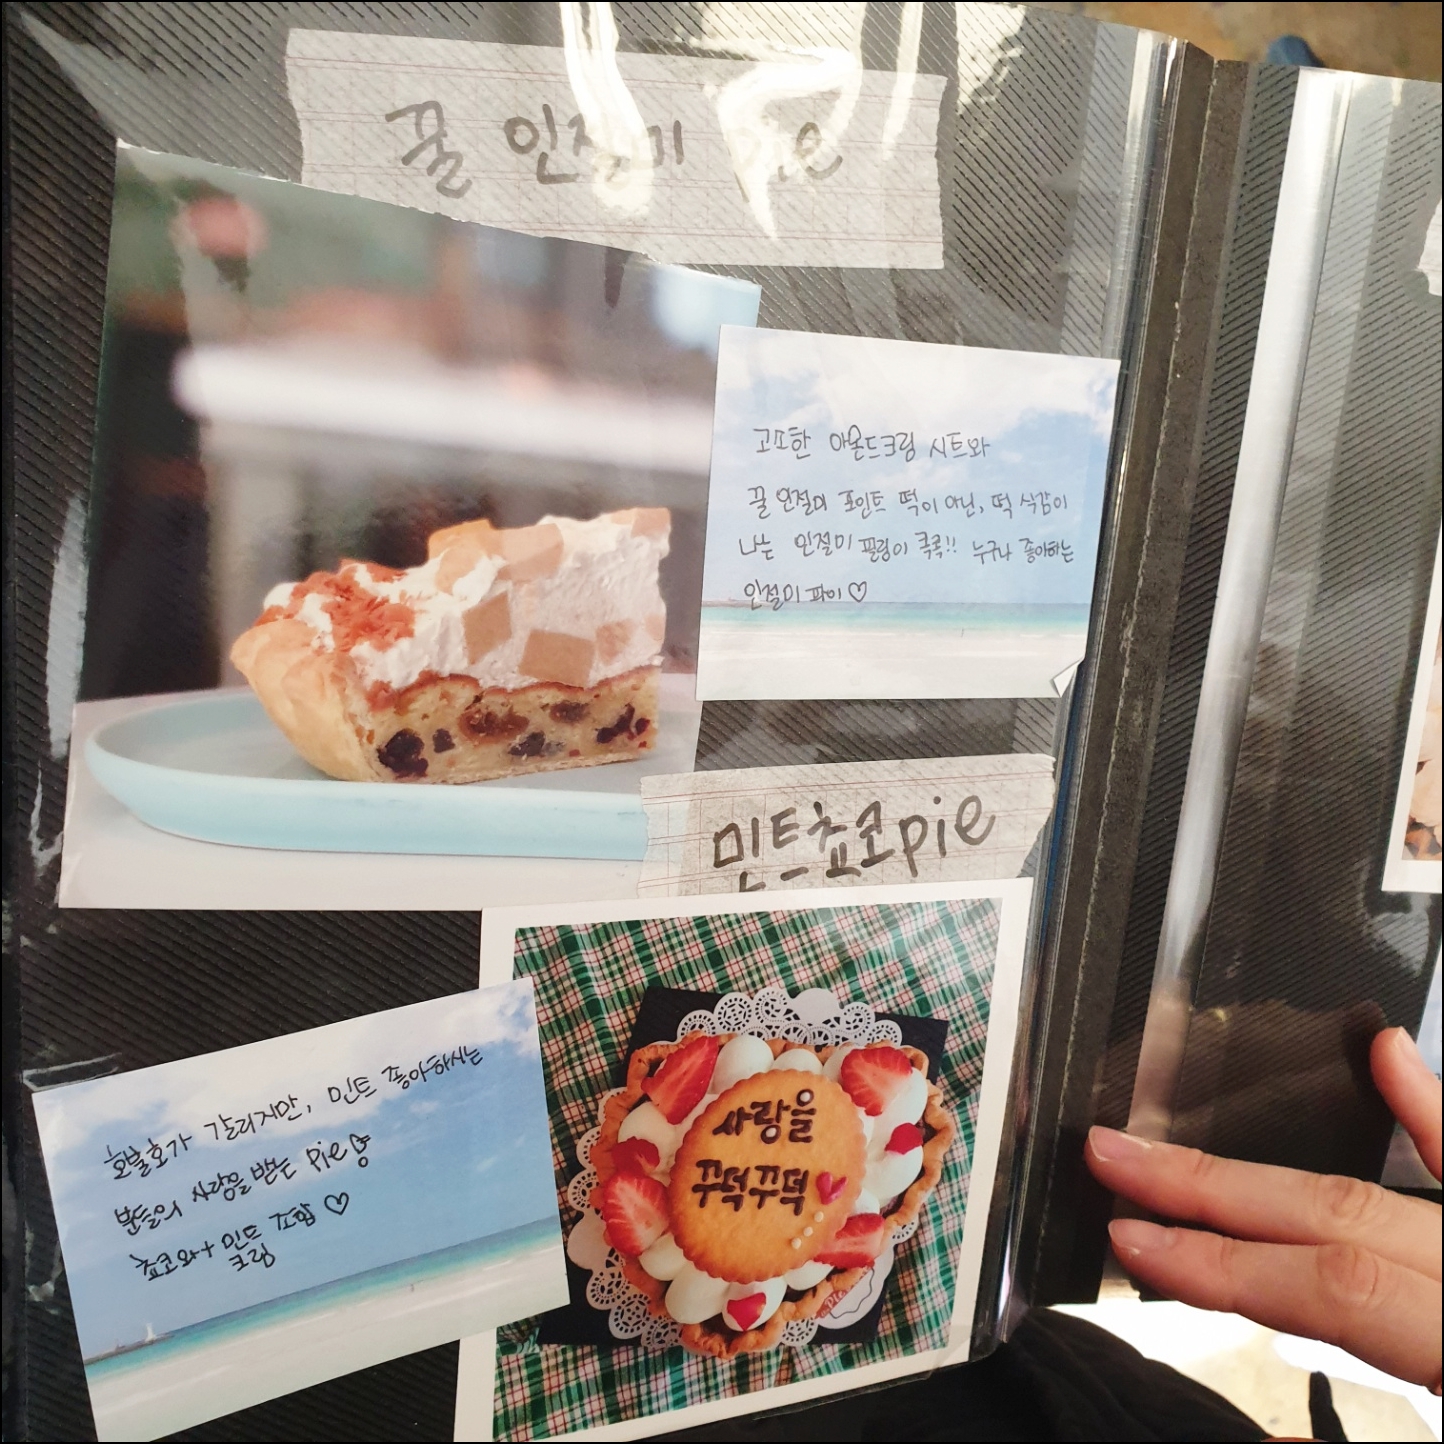 꿀 인절미 pie
고소한 아몬드크림 시트와
꿀 인절미 포인트 떡이 아닌, 떡 식감이
나는 인절미 필링이 콕콕!! 누구나 좋아하는
인절미 파이♡
민트쵸코pie
호불호가 갈리지만, 민트 좋아하시는
분들의 사랑을 받는 pie
쵸코와+ 민트 조합♡
크림
사랑을
꾸덕꾸덕